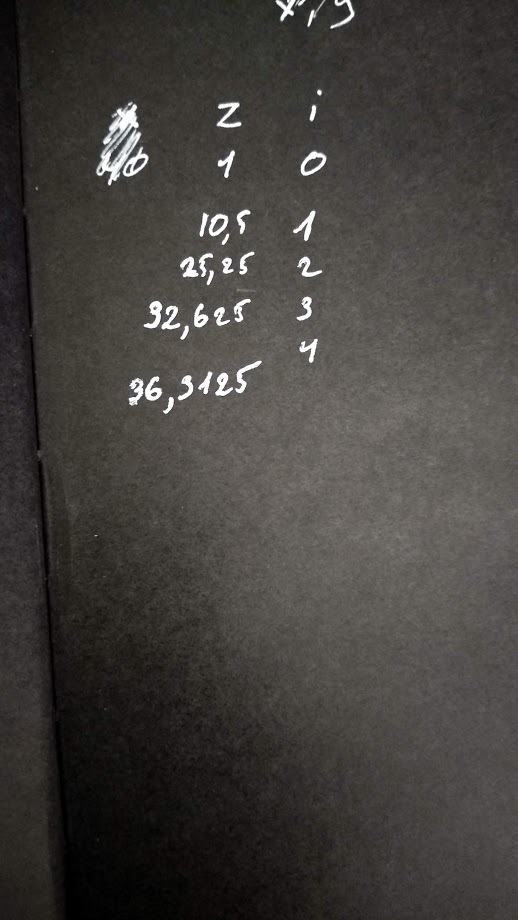 x, y
z i
1 0
10,5 1
25,25 2
32,625 3
4
36,3125